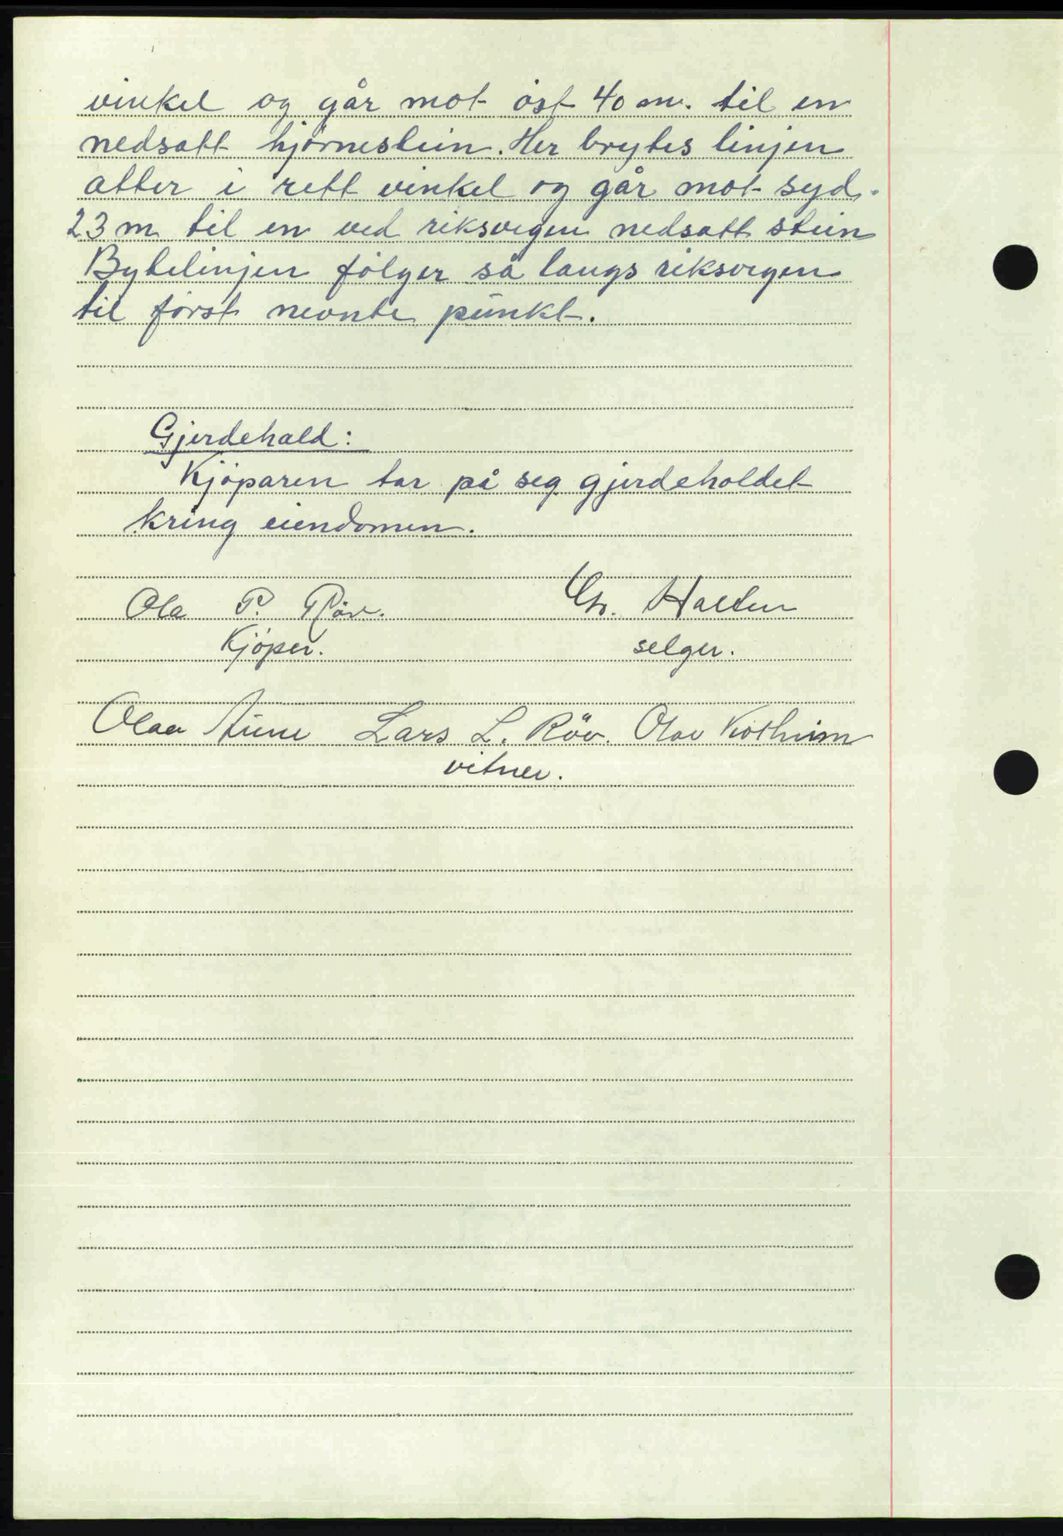 vinkel og går mot øst 40 m. til en
nedsatt hjørnestein. Her brytes linjen
atter i rett vinkel og går mot syd.
23 m til en ved riksvegen nedsatt stein
Bytelinjen følger så langs riksvegen
til først nevnte punkt.
Gjerdehald:
Kjøparen tar på seg gjerdeholdet
kring eiendomen.
Ola P. Röv. Chr. Halten
Kjøper. selger.
Olav Aune Lars L. Röv. Olav
vitner.